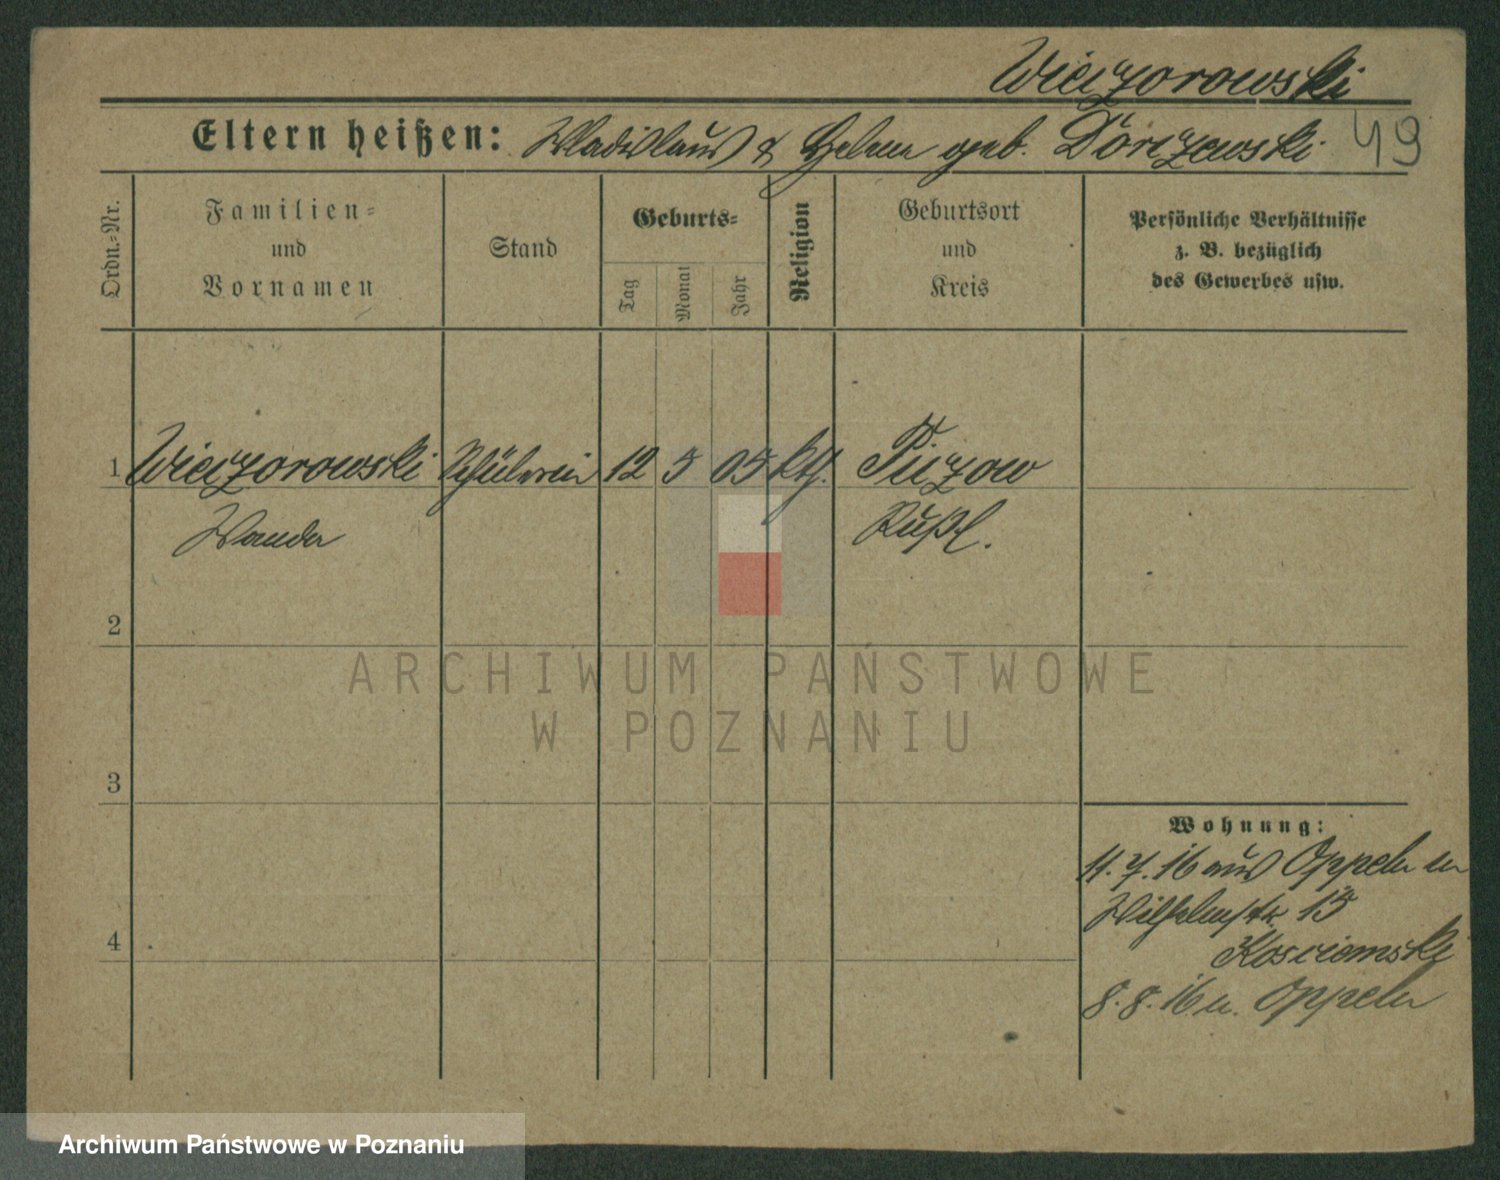 Wieczorowski
49
Eltern heißen: Wladislaus & Helene geb. Dorczewski
Ordn.=Nr.
Familien=
und
Vornamen
Stand
Geburts=
Tag
Monat
Jahr
Religion
Geburtsort
und
Kreis
Persönliche Verhältnisse
z. B. bezüglich
des Gewerbes usw.
1 Wieczorowski Schülerin 12 5 05 kth.
Wanda Rußl.
2
3
4
Wohnung:
11. 7. 16 aus Oppeln
Wilhelmstr. 15
8. 8. 16 n. Oppeln
ARCHIWUM PAŃSTWOWE
W POZNANIU
Archiwum Państwowe w Poznaniu